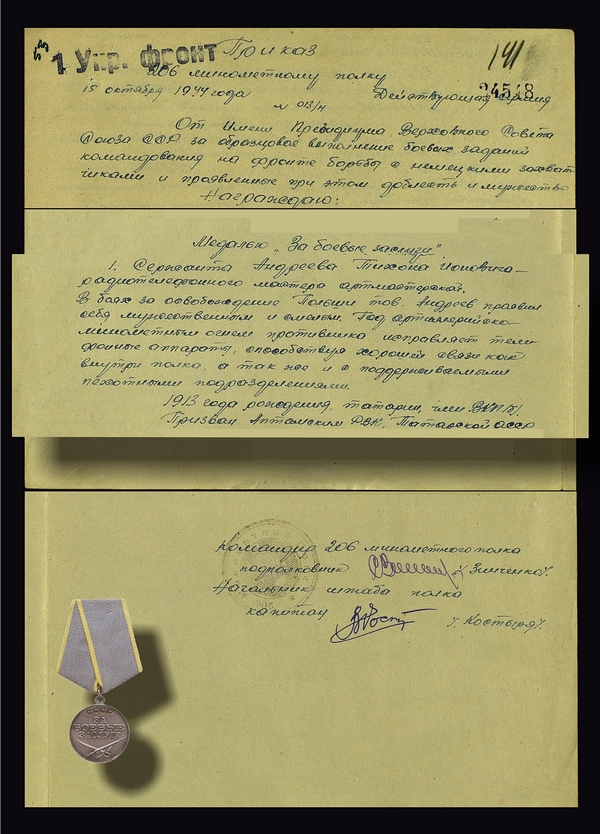 1 Укр. фронт
Приказ
141
206 минометному полку
24548
15 октября 1944 года Действующая армия
№ 013/н
От имени Президиума Верховного Совета
Союза ССР за образцовое выполнение боевых заданий
командования на фронте борьбы с немецкими захват-
чиками и проявленные при этом доблесть и мужество
Награждаю:
Медалью „За боевые заслуги"
1. Сержанта Андреева Тихона Ионовича –
радиотелефонного мастера артмастерской.
В боях за освобождение Польши тов. Андреев проявил
себя мужественным и смелым. Под артиллерийско-
минометным огнем противника исправляет теле-
фонные аппараты, способствуя хорошей связи как
внутри полка, а так же и с поддерживаемыми
пехотными подразделениями.
1913 года рождения, татарин, член ВКП/б/.
Призван Аптамским РВК, Татарской АССР
Командир 206 минометного полка
подполковник /Зинченко/.
Начальник штаба полка
капитан /Костыря/.
СССР
ЗА
БОЕВЫЕ
ЗАСЛУГИ